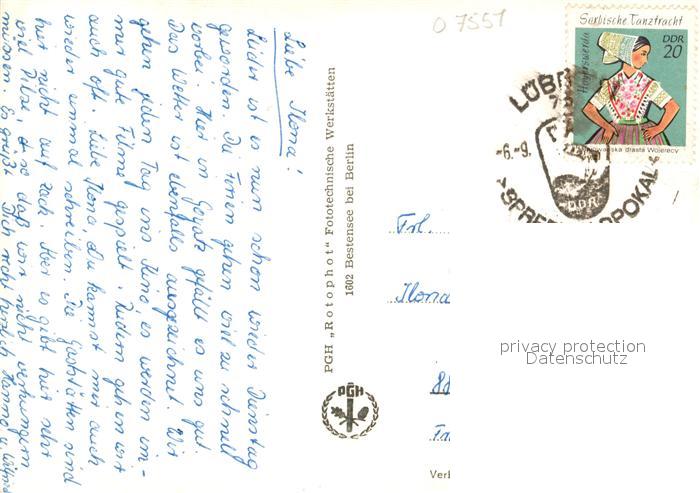 Liebe Ilona!
Leider ist es nun schon wieder Dienstag
geworden. Die Ferien gehen viel zu schnell
vorbei. Hier in Goyatz gefällt es uns gut.
Das Wetter ist ebenfalls ausgezeichnet. Wir
gehen jeden Tag ins Kino, es werden im-
mer gute Filme gespielt. Rudern gehen wir
auch oft. Liebe Ilona, Du kannst mir auch
wieder einmal schreiben. Die Gaststätten sind
hier nicht auf Zack. Aber es gibt hier sehr
viel Pilze, so daß wir nicht verhungern
müssen. Es grüßt Dich recht herzlich Hanno u.
PGH „Rotophot“ Fototechnische Werkstätten
1602 Bestensee bei Berlin
PGH
O 7551
Sorbische Tanztracht
Hoyerswerda
DDR
20
drasta Wojerecy
LÜB
-6.-9.
DDR
SPREE POKAL
Frl.
Ilona
privacy protection
Datenschutz